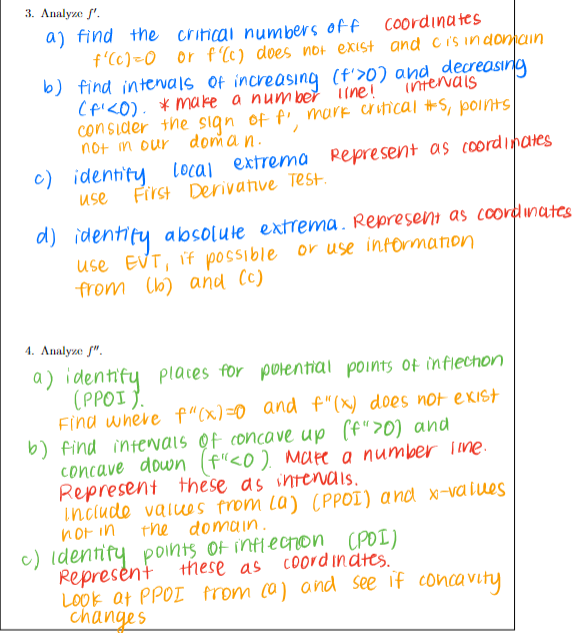 3. Analyze f'.
a) find the critical numbers of f coordinates
f'(c)=0 or f'(c) does not exist and c is in domain
b) find intervals of increasing (f'>0) and decreasing
(f'<0). * make a number line! intervals
consider the sign of f', mark critical #s, points
not in our doman.
c) identify local extrema Represent as coordinates
use First Derivative Test.
d) identify absolute extrema. Represent as coordinates
use EVT, if possible or use information
from (b) and (c)
4. Analyze f".
a) identify places for potential points of inflection
(PPOI).
Find where f"(x)=0 and f"(x) does not exist
b) find intervals of concave up (f">0) and
concave down (f"<0). Make a number line.
Represent these as intervals.
include values from (a) (PPOI) and x-values
not in the domain.
c) identify points of inflection (POI)
Represent these as coordinates.
Look at PPOI from (a) and see if concavity
changes